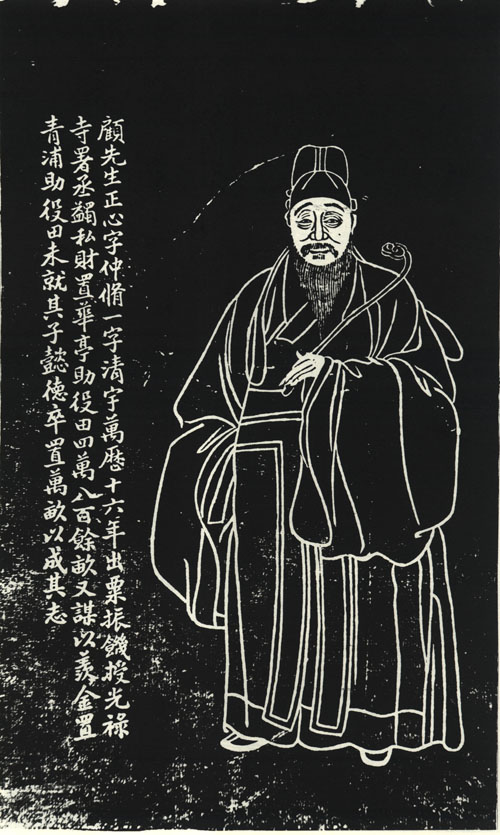 顧先生正心字仲脩一字清宇萬曆十六年出粟振饑授光祿
寺署丞蠲私財置華亭助役田四萬八百餘畝又謀以羨金置
青浦助役田未就其子懿德卒置萬畝以成其志